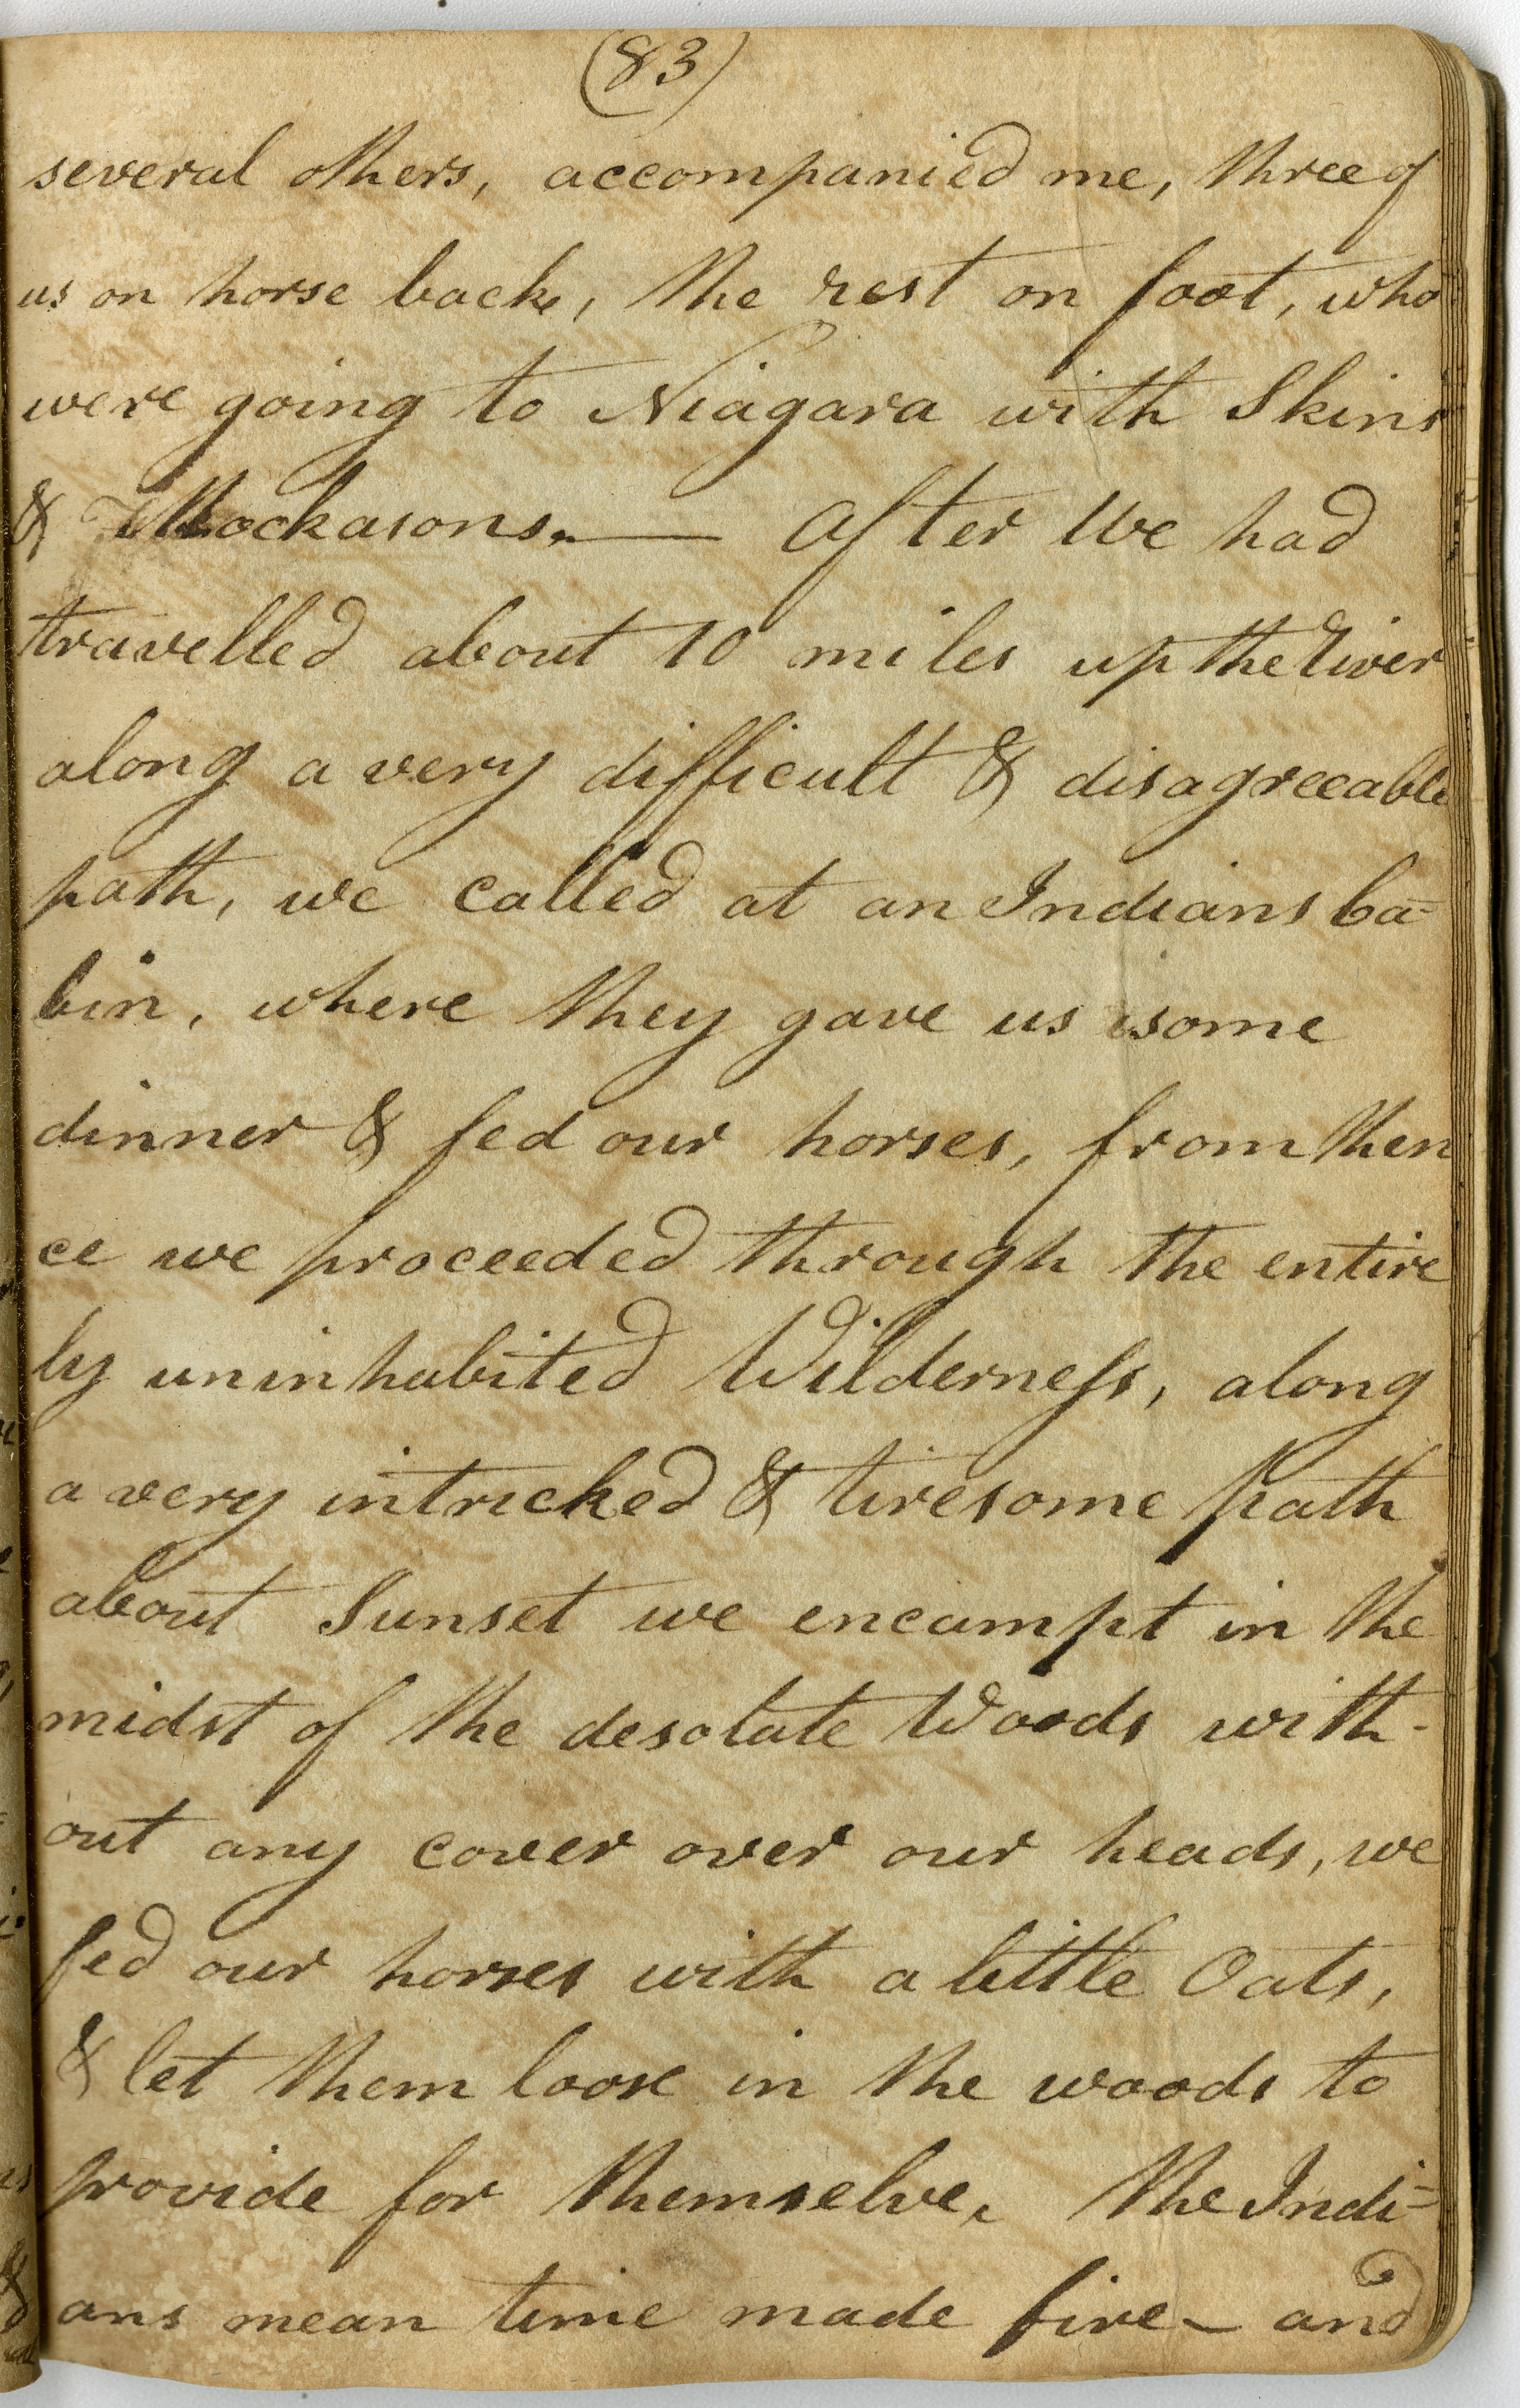 (83)
several others, accompanied me, three of
us on horse back, the rest on foot, who
were going to Niagara with Skins
& Mockasons. — After We had
travelled about 10 miles up the River
along a very difficult & disagreeable
path, we called at an Indians Ca=
bin, where they gave us some
dinner & fed our horses, from then
ce we proceeded through the entire
ly uninhabited Wilderness, along
a very intricked & tiresome Path
about Sunset we encampt in the
midst of the desolate Woods with-
out any cover over our heads, we
fed our horses with a little Oats,
& let them loose in the woods to
provide for themselve, the Indi=
ans mean time made fire – and